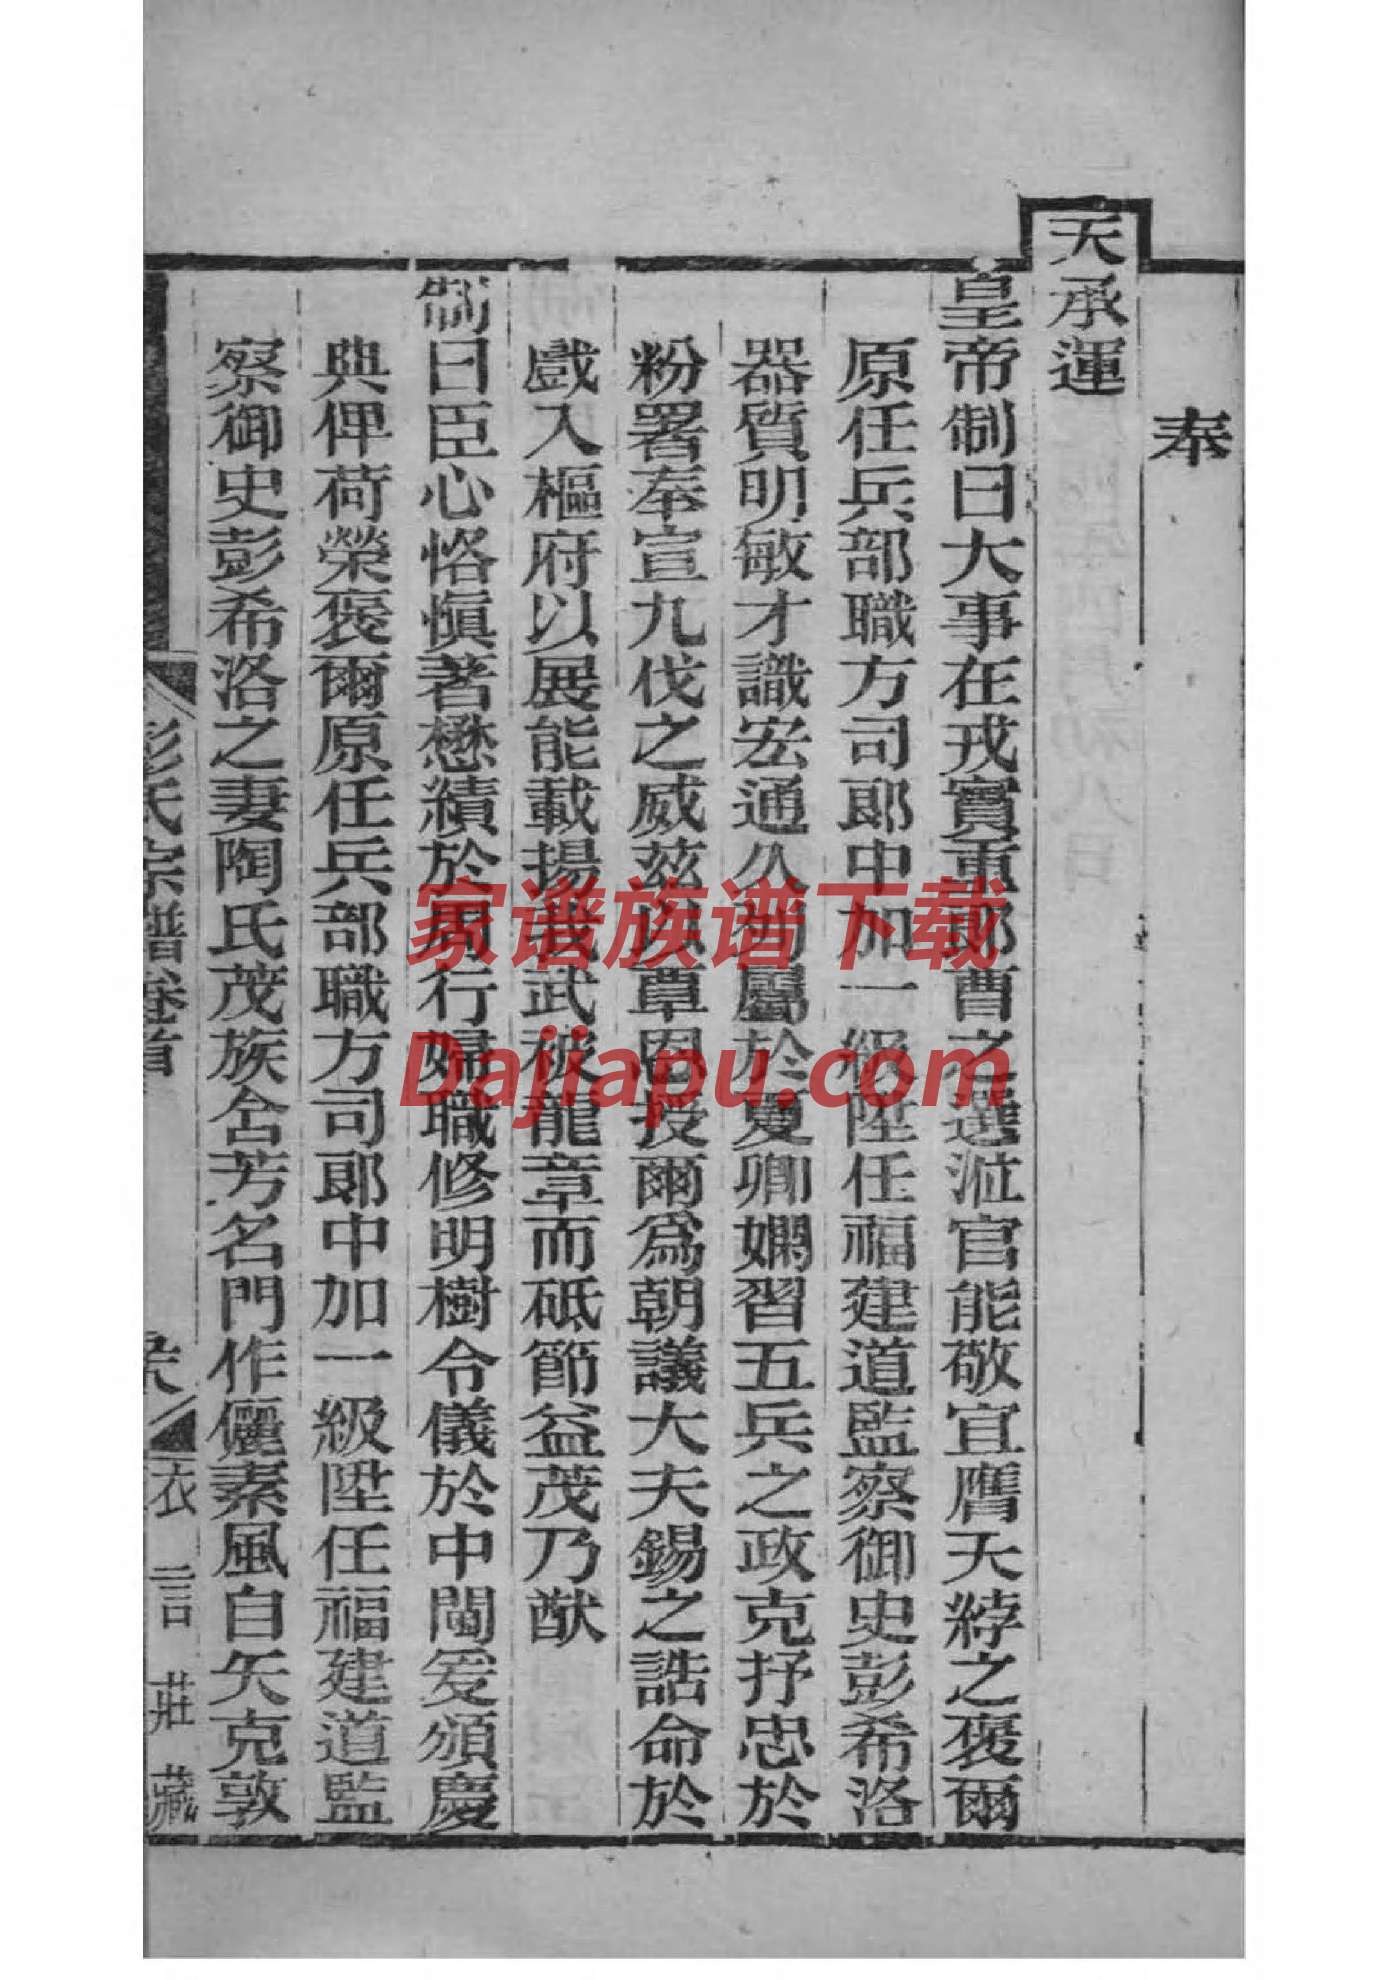 奉
天承運
皇帝制曰大事在戎實重郎曹之選涖官能敬宜膺天綍之褒爾
原任兵部職方司郎中加一級陞任福建道監察御史彭希洛
器質明敏才識宏通久列屬於夏卿嫻習五兵之政克抒忠於
粉署奉宣九伐之威茲以覃恩授爾爲朝議大夫錫之誥命於
戲入樞府以展能載揚我武被龍章而砥節益茂乃猷
制曰臣心恪愼著懋績於周行婦職修明樹令儀於中閫爰頒慶
典俾荷榮褒爾原任兵部職方司郎中加一級陞任福建道監
察御史彭希洛之妻陶氏茂族含芳名門作儷素風自矢克敦
彭氏宗譜卷首
衣言莊藏
家谱族谱下载
Dajiapu.com